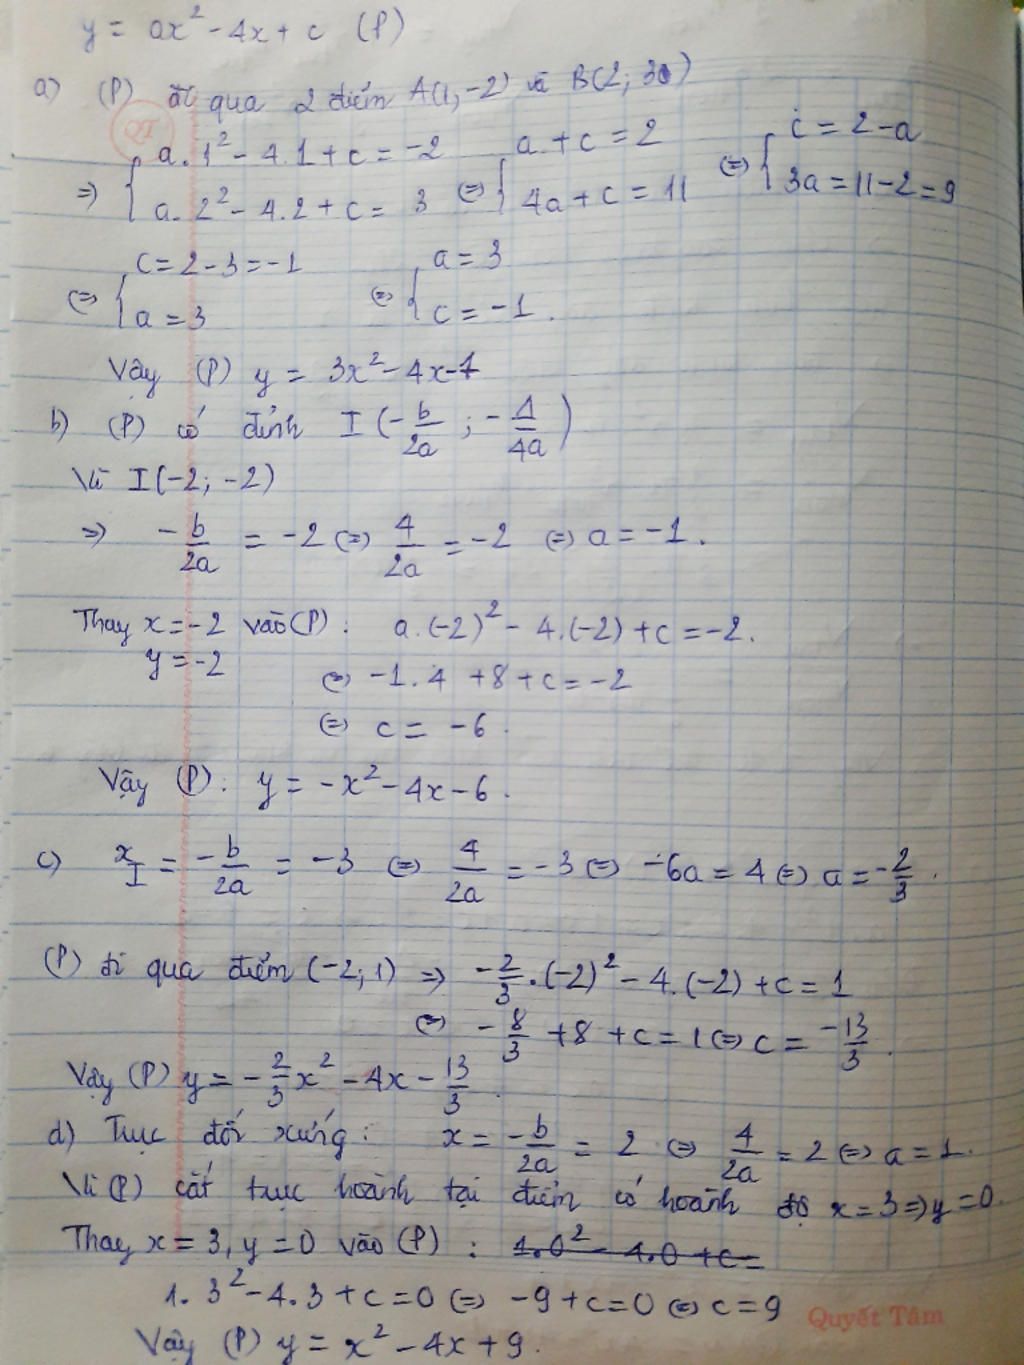 y = ax² - 4x + c (P)
a) (P) đi qua 2 điểm A(1,-2) và B(2; 3)
QT
=> { a.1² - 4.1 + c = -2 <=> { a + c = 2 <=> { c = 2-a
a.2² - 4.2 + c = 3 4a + c = 11 3a = 11-2 = 9
<=> { c = 2-3 = -1 <=> { a = 3
a = 3 c = -1.
Vậy (P) y = 3x² - 4x - 1
b) (P) có đỉnh I (-b/2a ; -Δ/4a)
Vì I(-2; -2)
=> -b/2a = -2 <=> 4/2a = -2 <=> a = -1.
Thay x = -2 vào (P): a.(-2)² - 4.(-2) + c = -2.
y = -2
<=> -1.4 + 8 + c = -2
<=> c = -6.
Vậy (P): y = -x² - 4x - 6.
c) x_I = -b/2a = -3 <=> 4/2a = -3 <=> -6a = 4 <=> a = -2/3.
(P) đi qua điểm (-2; 1) => -2/3.(-2)² - 4.(-2) + c = 1
<=> -8/3 + 8 + c = 1 <=> c = -13/3.
Vậy (P) y = -2/3x² - 4x - 13/3.
d) Trục đối xứng: x = -b/2a = 2 <=> 4/2a = 2 <=> a = 1.
Vì (P) cắt trục hoành tại điểm có hoành độ x = 3 => y = 0.
Thay x = 3, y = 0 vào (P): 1.0² - 4.0 + c =
1.3² - 4.3 + c = 0 <=> -9 + c = 0 <=> c = 9
Quyết Tâm
Vậy (P) y = x² - 4x + 9.